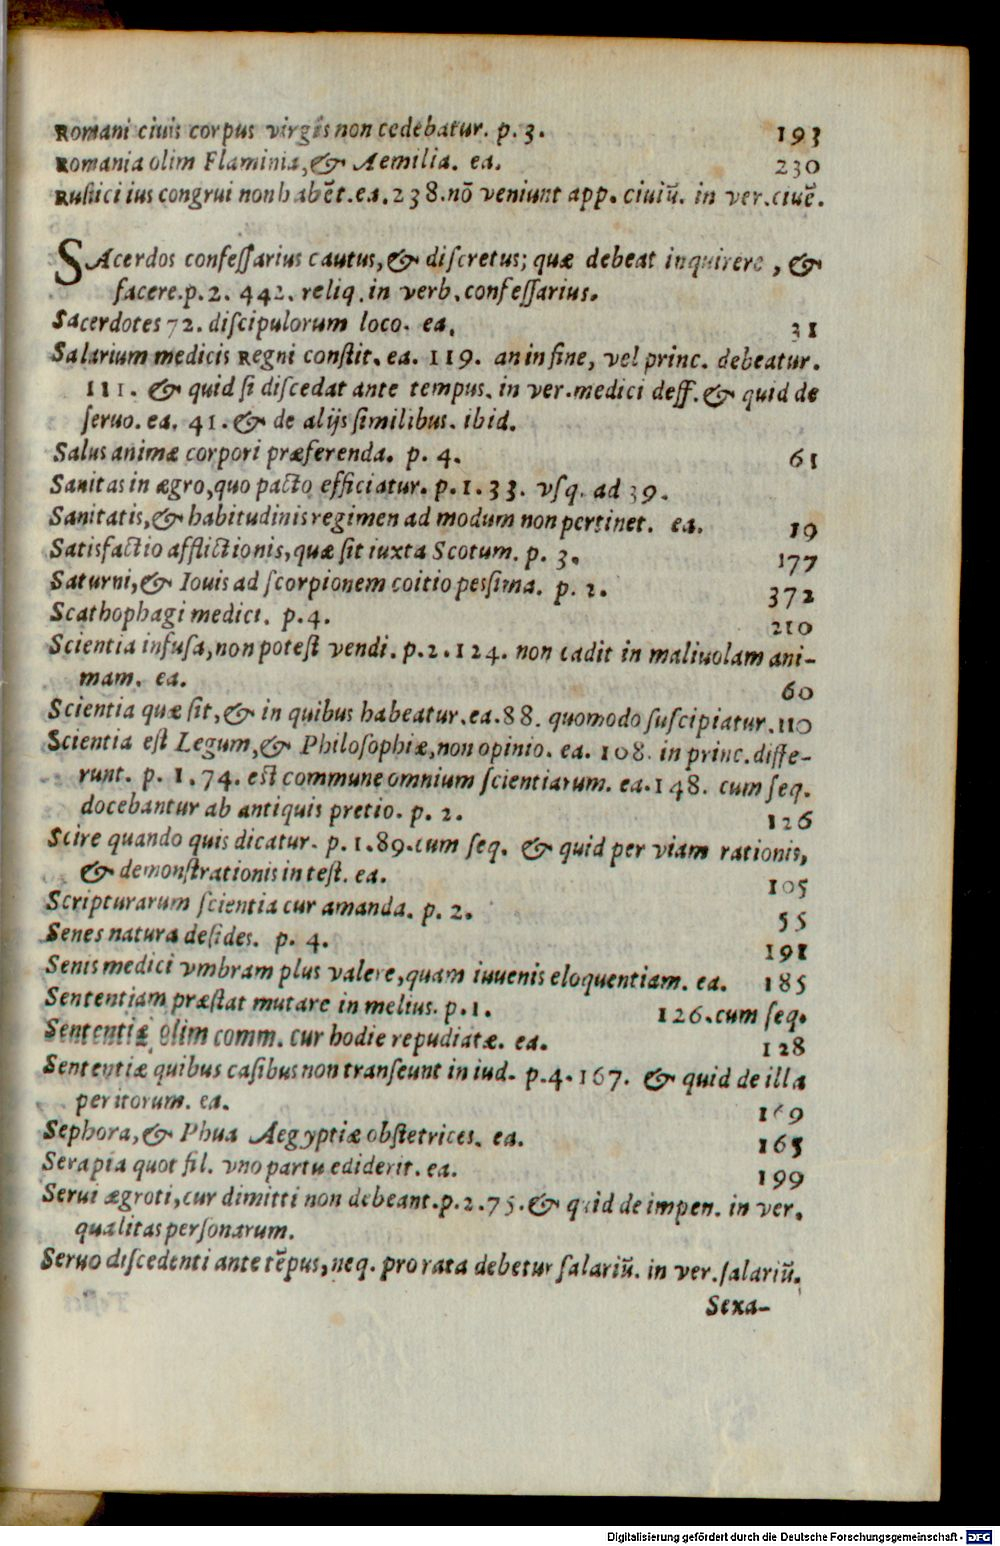 Romani ciuis corpus virgis non cedebatur. p. 3. 193
Romania olim Flaminia, & Aemilia. ea. 230
Rustici ius congrui non habēt. ea. 238. nō veniunt app. ciuiū. in ver. ciuē.
SAcerdos confessarius cautus, & discretus; quæ debeat inquirere, &
facere. p. 2. 442. reliq. in verb. confessarius.
Sacerdotes 72. discipulorum loco. ea. 31
Salarium medicis Regni constit. ea. 119. an in fine, vel princ. debeatur.
111. & quid si discedat ante tempus. in ver. medici deff. & quid de
seruo. ea. 41. & de alijs similibus. ibid.
Salus animæ corpori præferenda. p. 4. 61
Sanitas in ægro, quo pacto efficiatur. p. 1. 33. vsq. ad 39.
Sanitatis, & habitudinis regimen ad modum non pertinet. ea. 19
Satisfactio afflictionis, quæ sit iuxta Scotum. p. 3. 177
Saturni, & Iouis ad scorpionem coitio pessima. p. 2. 372
Scathophagi medici. p. 4. 210
Scientia infusa, non potest vendi. p. 2. 124. non cadit in maliuolam ani-
mam. ea. 60
Scientia quæ sit, & in quibus habeatur. ea. 88. quomodo suscipiatur. 110
Scientia est Legum, & Philosophiæ, non opinio. ea. 108. in princ. diffe-
runt. p. 1. 74. est commune omnium scientiarum. ea. 148. cum seq.
docebantur ab antiquis pretio. p. 2. 126
Scire quando quis dicatur. p. 1. 89. cum seq. & quid per viam rationis,
& demonstrationis in test. ea. 105
Scripturarum scientia cur amanda. p. 2. 55
Senes natura desides. p. 4. 191
Senis medici vmbram plus valere, quam iuuenis eloquentiam. ea. 185
Sententiam præstat mutare in melius. p. 1. 126. cum seq.
Sententiæ olim comm. cur hodie repudiatæ. ea. 128
Sententiæ quibus casibus non transeunt in iud. p. 4. 167. & quid de illa
peritorum. ea. 169
Sephora, & Phua Aegyptiæ obstetrices. ea. 165
Serapia quot fil. vno partu ediderit. ea. 199
Serui ægroti, cur dimitti non debeant. p. 2. 75. & quid de impen. in ver.
qualitas personarum.
Seruo discedenti ante tēpus, neq. pro rata debetur salariū. in ver. salariū.
Sexa-
Digitalisierung gefördert durch die Deutsche Forschungsgemeinschaft - DFG